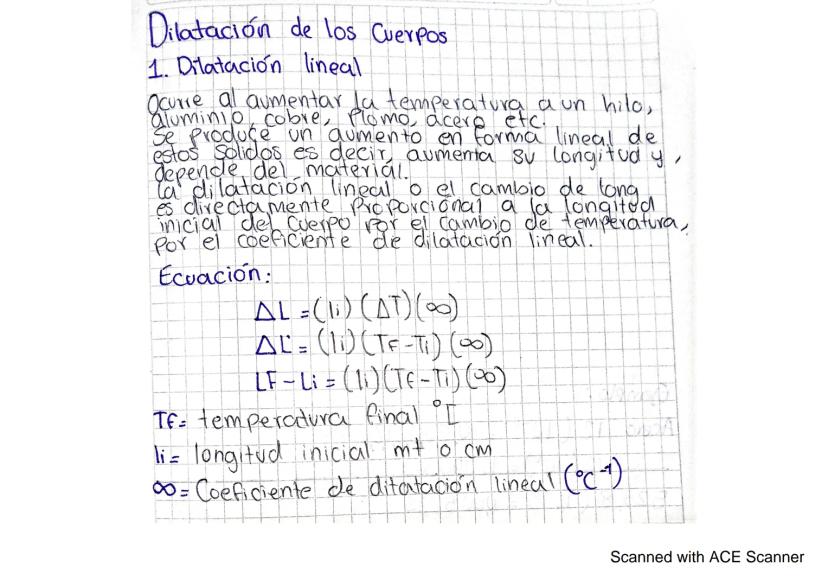 Dilatación de los Cuerpos
1. Dilatación lineal
Ocurre al aumentar la temperatura a un hilo,
aluminio, cobre, Plomo, acero etc.
Se produce un aumento en forma lineal de
estos solidos es decir, aumenta su longitud y,
depende del material.
la dilatación lineal o el cambio de long
es directamente Proporcional a la longitud
inicial del Cuerpo Por el cambio de temperatura,
Por el coeficiente de dilatación lineal.
Ecuación:
ΔL = (li) (ΔT) (∞)
ΔL = (li) (TF - Ti) (∞)
LF - Li = (li) (Tf - Ti) (∞)
Tf = temperatura final °C
li = longitud inicial mt o cm
∞ = Coeficiente de ditatación lineal (°C⁻¹)
Scanned with ACE Scanner